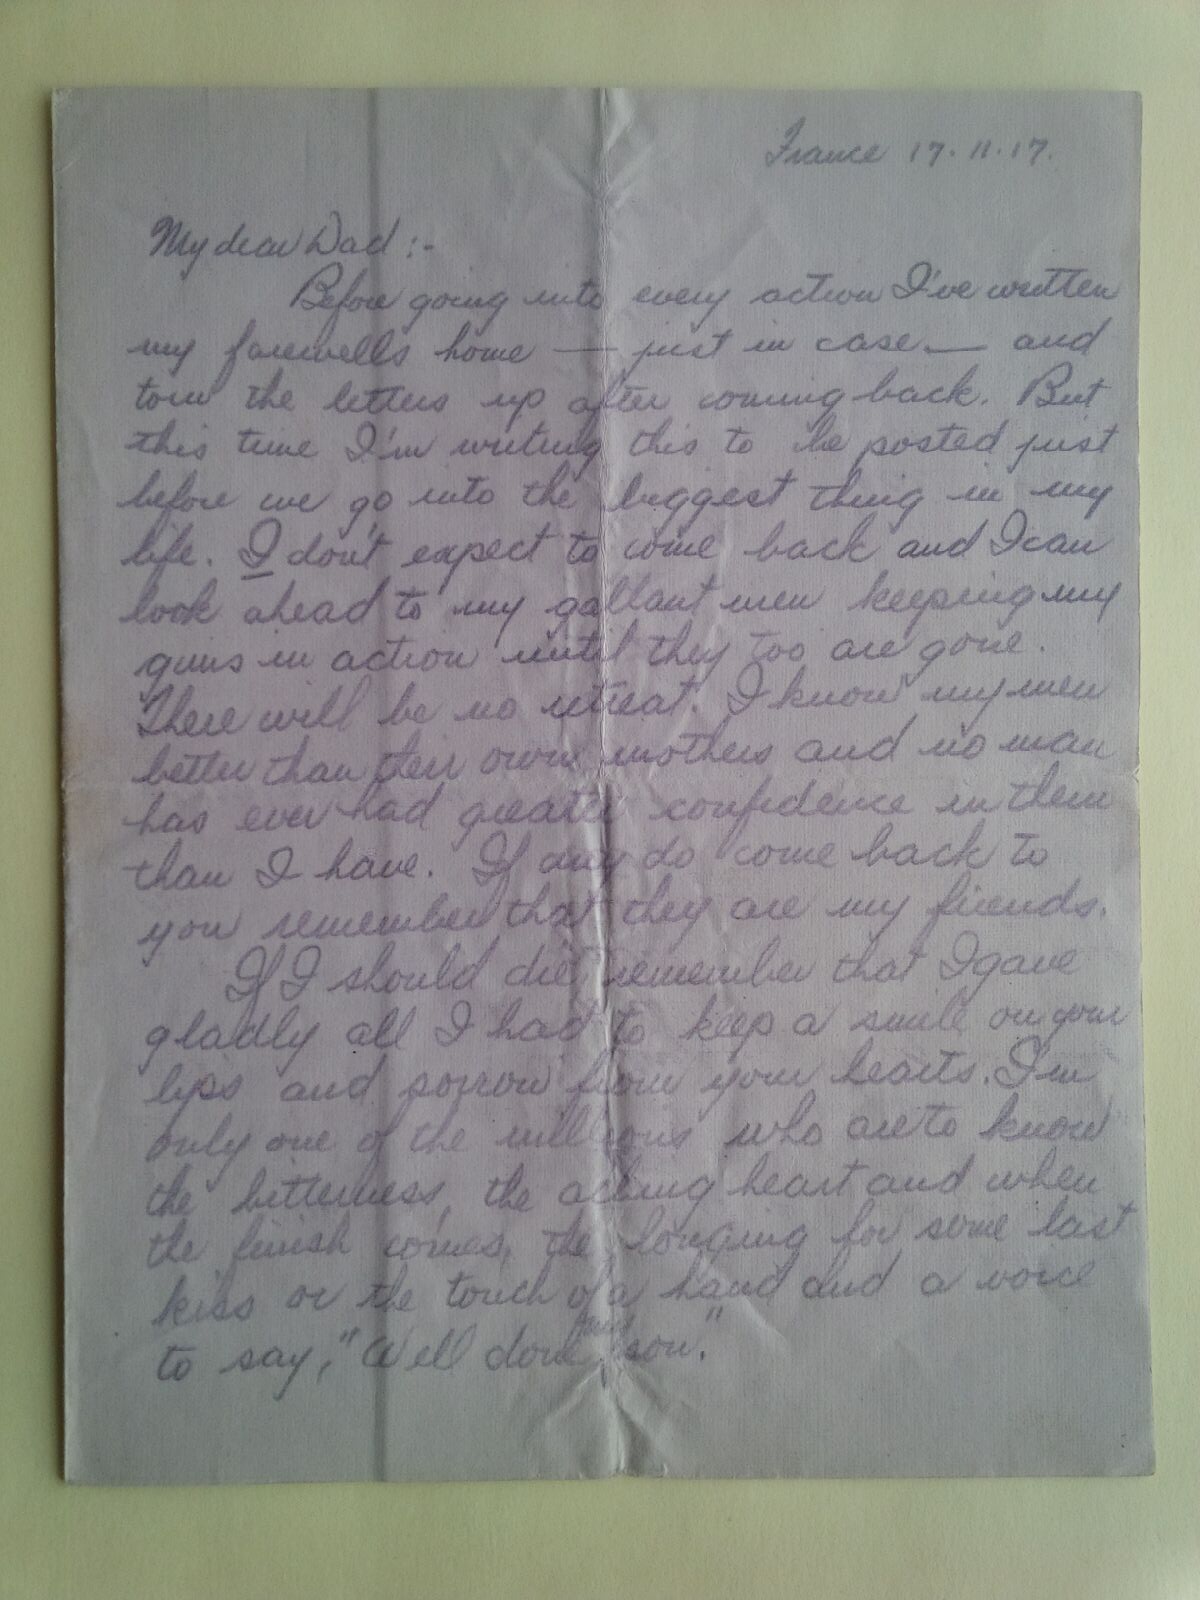 France 17.11.17.
My dear Dad :-
Before going into every action I've written
my farewells home — just in case — and
torn the letters up after coming back. But
this time I'm writing this to be posted just
before we go into the biggest thing in my
life. I don't expect to come back and I can
look ahead to my gallant men keeping my
guns in action until they too are gone.
There will be no retreat. I know my men
better than their own mothers and no man
has ever had greater confidence in them
than I have. If any do come back to
you remember that they are my friends.
If I should die remember that I gave
gladly all I had to keep a smile on your
lips and sorrow from your hearts. I'm
only one of the millions who are to know
the bitterness, the aching heart and when
the finish comes, the longing for some last
kiss or the touch of a hand and a voice
to say, "Well done, son."